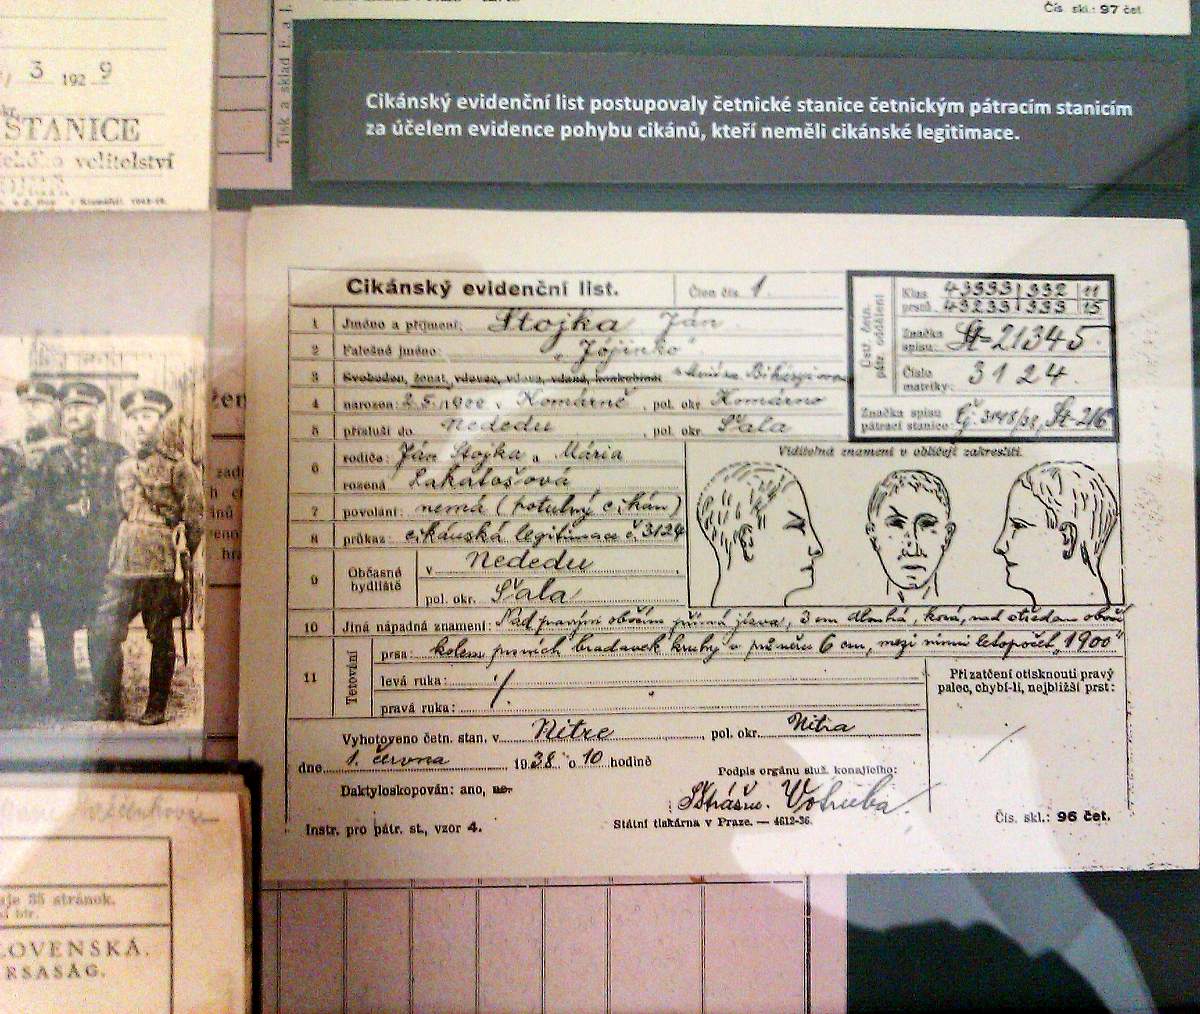 Čís. skl.: 97 čet.
3 192 9
STANICE
velitelství
Tisk a sklad F. a J.
Cikánský evidenční list postupovaly četnické stanice četnickým pátracím stanicím
za účelem evidence pohybu cikánů, kteří neměli cikánské legitimace.
Cikánský evidenční list.
Člen čís. 1.
1 Jméno a příjmení: Stojka Ján
2 Falešné jméno: „Jójinko"
3 Svoboden, ženat, vdovec, vdova, vdaná, konkubinát
4 narozen: 2.5. 1900 v Komárně, pol. okr. Komárno
5 přísluší do Nededu, pol. okr. Šala
6 rodiče: Ján Stojka a Mária
rozená Lakatošová
7 povolání: nemá (potulný cikán)
8 průkaz: cikánská legitimace č. 3124
9 Občasné bydliště v Nededu
pol. okr. Šala
Ústř. četn. pátr. oddělení
Klas. prstů: 43333 332 11
43233 333 15
Značka spisu: St-21345.
Číslo matriky: 3124.
Značka spisu
pátrací stanice: Čj. 3148/38, St-216
Viditelná znamení v obličeji zakresliti.
10 Jiná nápadná znamení: Nad pravým obočím přímá jizva, 3 cm dlouhá, kosá, nad středem obočí
11 Tetování
prsa: kolem prsních bradavek kruhy v průměru 6 cm, mezi nimi letopočet „1900"
levá ruka:
pravá ruka:
Při zatčení otisknouti pravý
palec, chybí-li, nejbližší prst:
Vyhotoveno četn. stan. v Nitre, pol. okr. Nitra
dne 1. června 1938 o 10 hodině
Podpis orgánu služ. konajícího:
Daktyloskopován: ano, ne.
Strážm. Votruba
Instr. pro pátr. st., vzor 4.
Státní tiskárna v Praze. — 4612-36.
Čís. skl.: 96 čet.
35 stránok.
LOVENSKÁ.
RSASÁG.